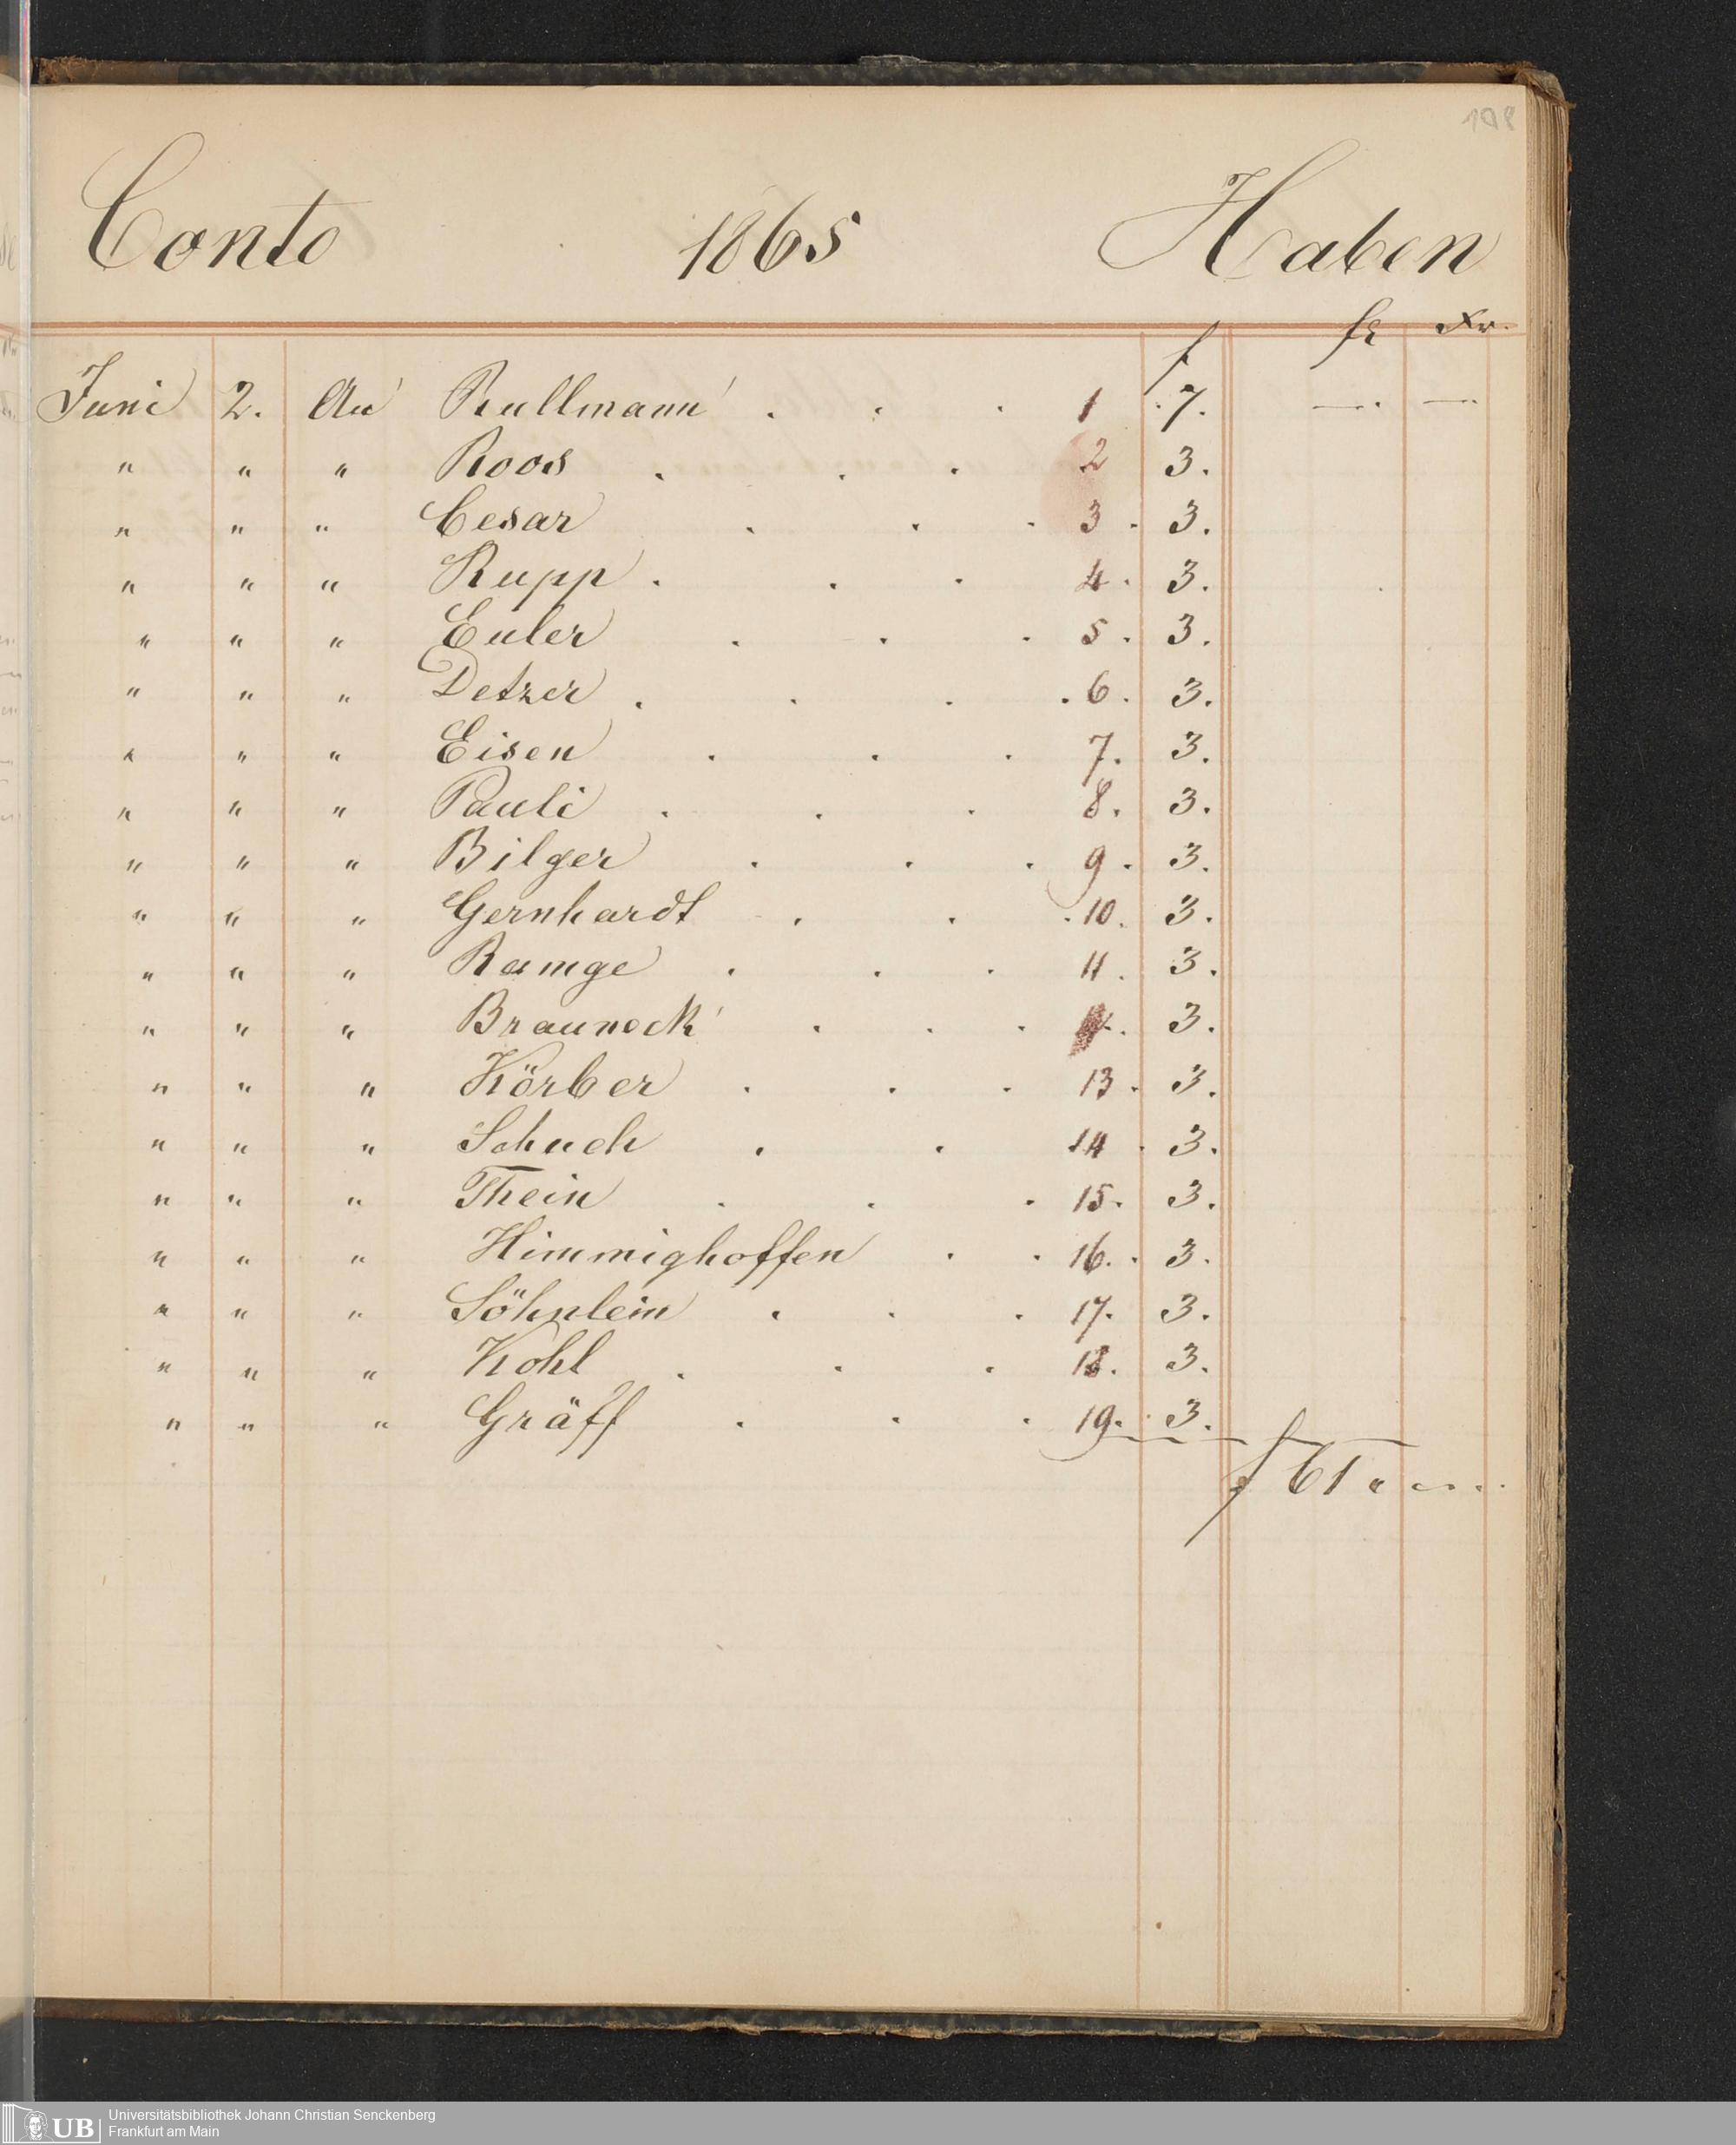 108
Conto 1865 Haben
f fl Xr.
Juni 2. An Rullmann . . . 1 . 7. —. —
" " " Roos . . . 2 3.
" " " Cesar . . . 3 . 3.
" " " Rupp . . . 4 . 3.
" " " Euler . . . 5 . 3.
" " " Detzer . . . . 6 . 3.
" " " Eisen . . . 7. 3.
" " " Pauli . . . 8. 3.
" " " Bilger . . . 9 . 3.
" " " Gernhardt . . . 10. 3.
" " " Ramge . . . 11 . 3.
" " " Brauneck . . . 3.
" " " Körber . . . 13 . 3.
" " " Schuch . . 14 . 3.
" " " Thein . . . 15. 3.
" " " Himmighoffen . . 16. . 3.
" " " Söhnlein . . . 17. 3.
" " " Kohl . . . 18. 3.
" " " Gräff . . . 19. . 3.
f 61 " "
UB Universitätsbibliothek Johann Christian Senckenberg
Frankfurt am Main